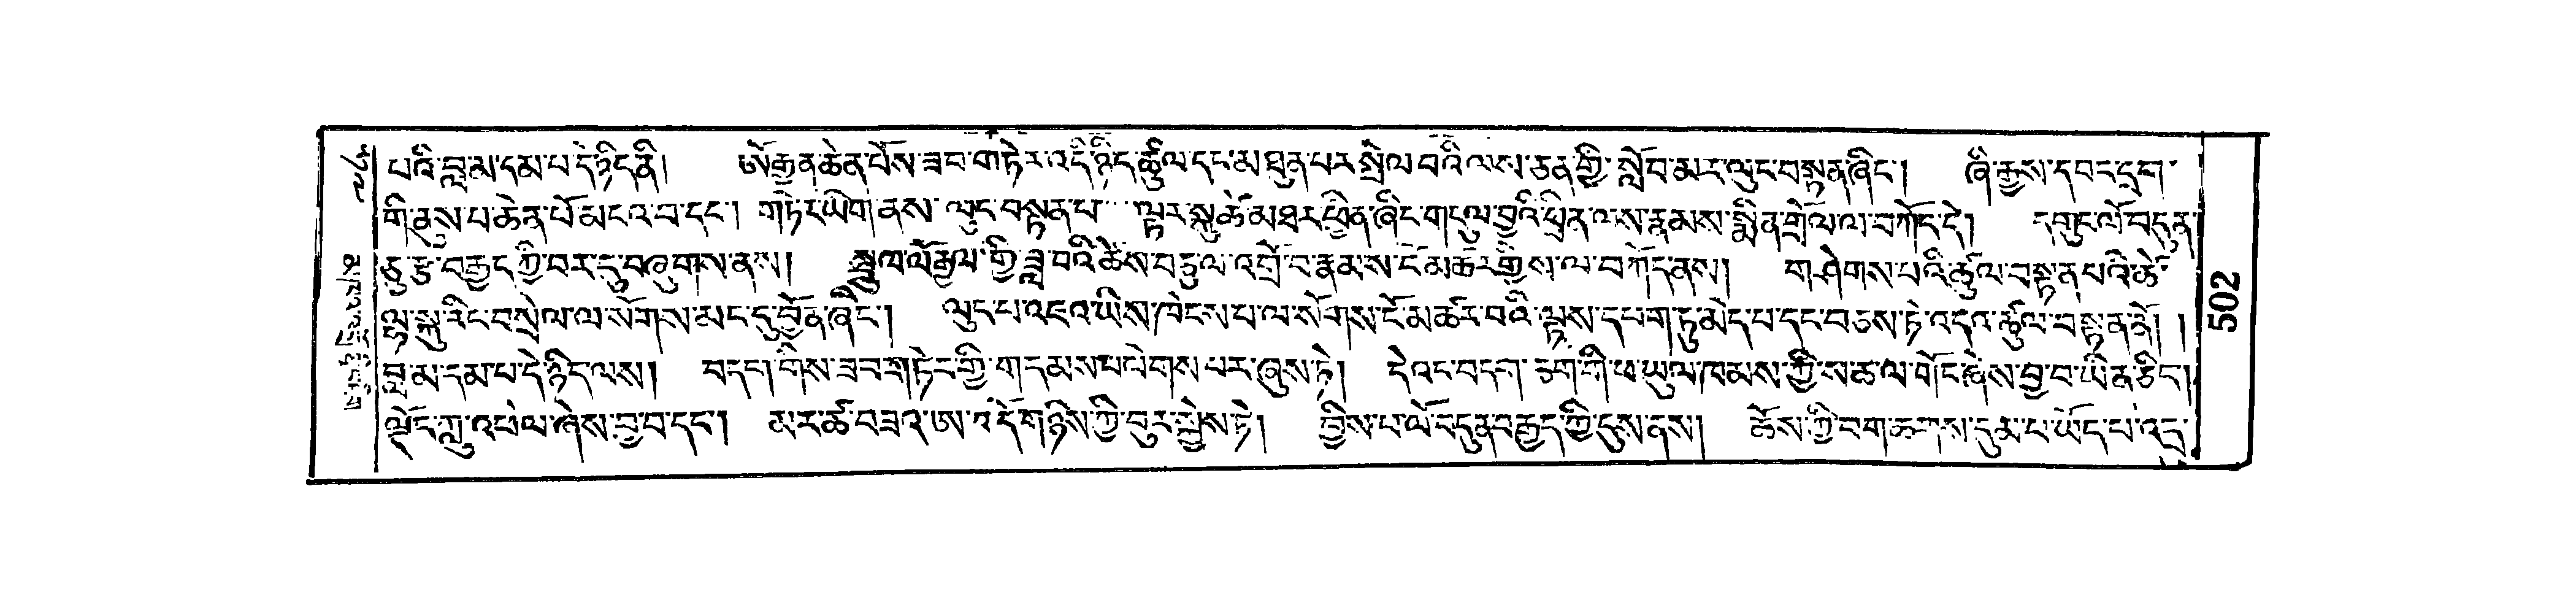 པའི་བླ་མ་དམ་པ་དེ་ཉིད་ནི། ཨོ་རྒྱན་ཆེན་པོས་ཟབ་གཏེར་འདི་ཉིད་ཚུལ་དང་མཐུན་པར་སྤེལ་བའི་ལས་ཅན་གྱི་སློབ་མར་ལུང་བསྟན་ཞིང་། ཞི་རྒྱས་དབང་དྲག་
གི་ནུས་པ་ཆེན་པོ་མངའ་བ་དང་། གཏེར་ཡིག་ནས་ལུང་བསྟན་པ་ལྟར་སྐུ་ཚེ་མཐར་ཕྱིན་ཞིང་གདུལ་བྱའི་ཕྲིན་ལས་རྣམས་སྨིན་གྲོལ་ལ་བཀོད་དེ། དགུང་ལོ་བདུན་
ཅུ་རྩ་བརྒྱད་ཀྱི་བར་དུ་བཞུགས་ནས། སྦྲུལ་ལོ་རྒྱལ་གྱི་ཟླ་བའི་ཚེས་བདུལ་འགྲོ་བ་རྣམས་ངོ་མཚར་གྱིས་ལ་བཀོད་ནས། གཤེགས་པའི་ཚུལ་བསྟན་པའི་ཚེ་
ལྷ་སྐུ་རིང་བསྲེལ་ལ་སོགས་མང་དུ་བྱོན་ཞིང་། ལུང་པ་འཇའ་ཡིས་ཁེངས་པ་ལ་སོགས་ངོ་མཚར་བའི་ལྟས་དཔག་ཏུ་མེད་པ་དང་བཅས་ཏེ་འདའ་ཚུལ་བསྟན་ནོ། །
བླ་མ་དམ་པ་དེ་ཉིད་ལས། བདག་གིས་ཟབ་གཏེར་གྱི་གདམས་པ་ལེགས་པར་ཞུས་ཏེ། དེ་འང་བདག་ཅག་གི་ཕ་ཡུལ་ཁམས་ཀྱི་ས་ཆ་ལ་གོང་ཞེས་བྱ་བ་ཡིན་ཅིང་།
ལྡོང་ཀླུ་འཕེལ་ཞེས་བྱ་བ་དང་། མ་ར་ཚེ་བཟའ་ཨ་འདོག་ཉིས་ཀྱི་བུར་སྐྱེས་ཏེ། བྱིས་པ་ལོ་བདུན་བརྒྱད་ཀྱི་དུས་ནས། ཆོས་ཀྱི་བག་ཆགས་དུམ་པ་ཡོད་པ་འདྲ་
502